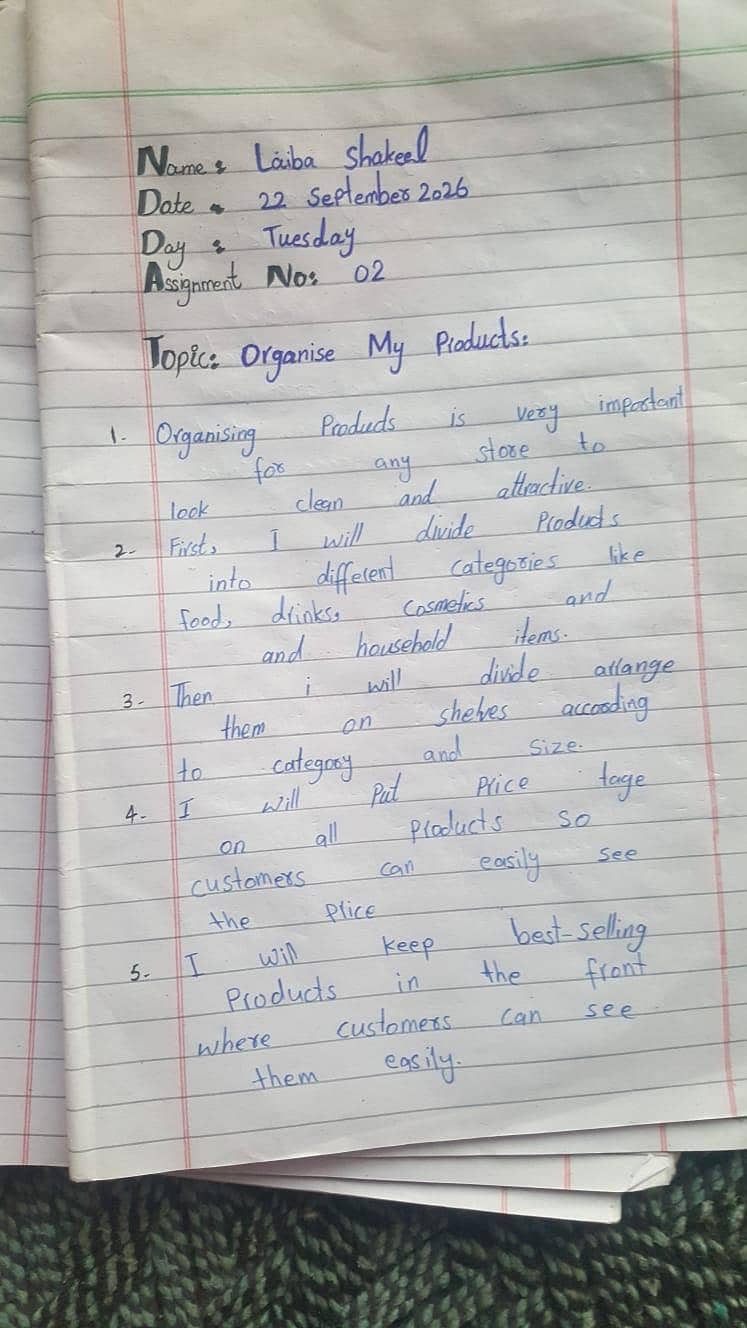 Name: Laiba Shakeel
Date: 22 September 2026
Day: Tuesday
Assignment No: 02
Topic: Organise My Products:
1. Organising Products is very important
for any store to
look clean and attractive.
2. First, I will divide Products
into different categories like
food, drinks, cosmetics and
and household items.
3. Then i will divide arrange
them on shelves according
to category and size.
4. I will Put Price tage
on all products so
customers can easily see
the price
5. I will keep best-selling
Products in the front
where customers can see
them easily.